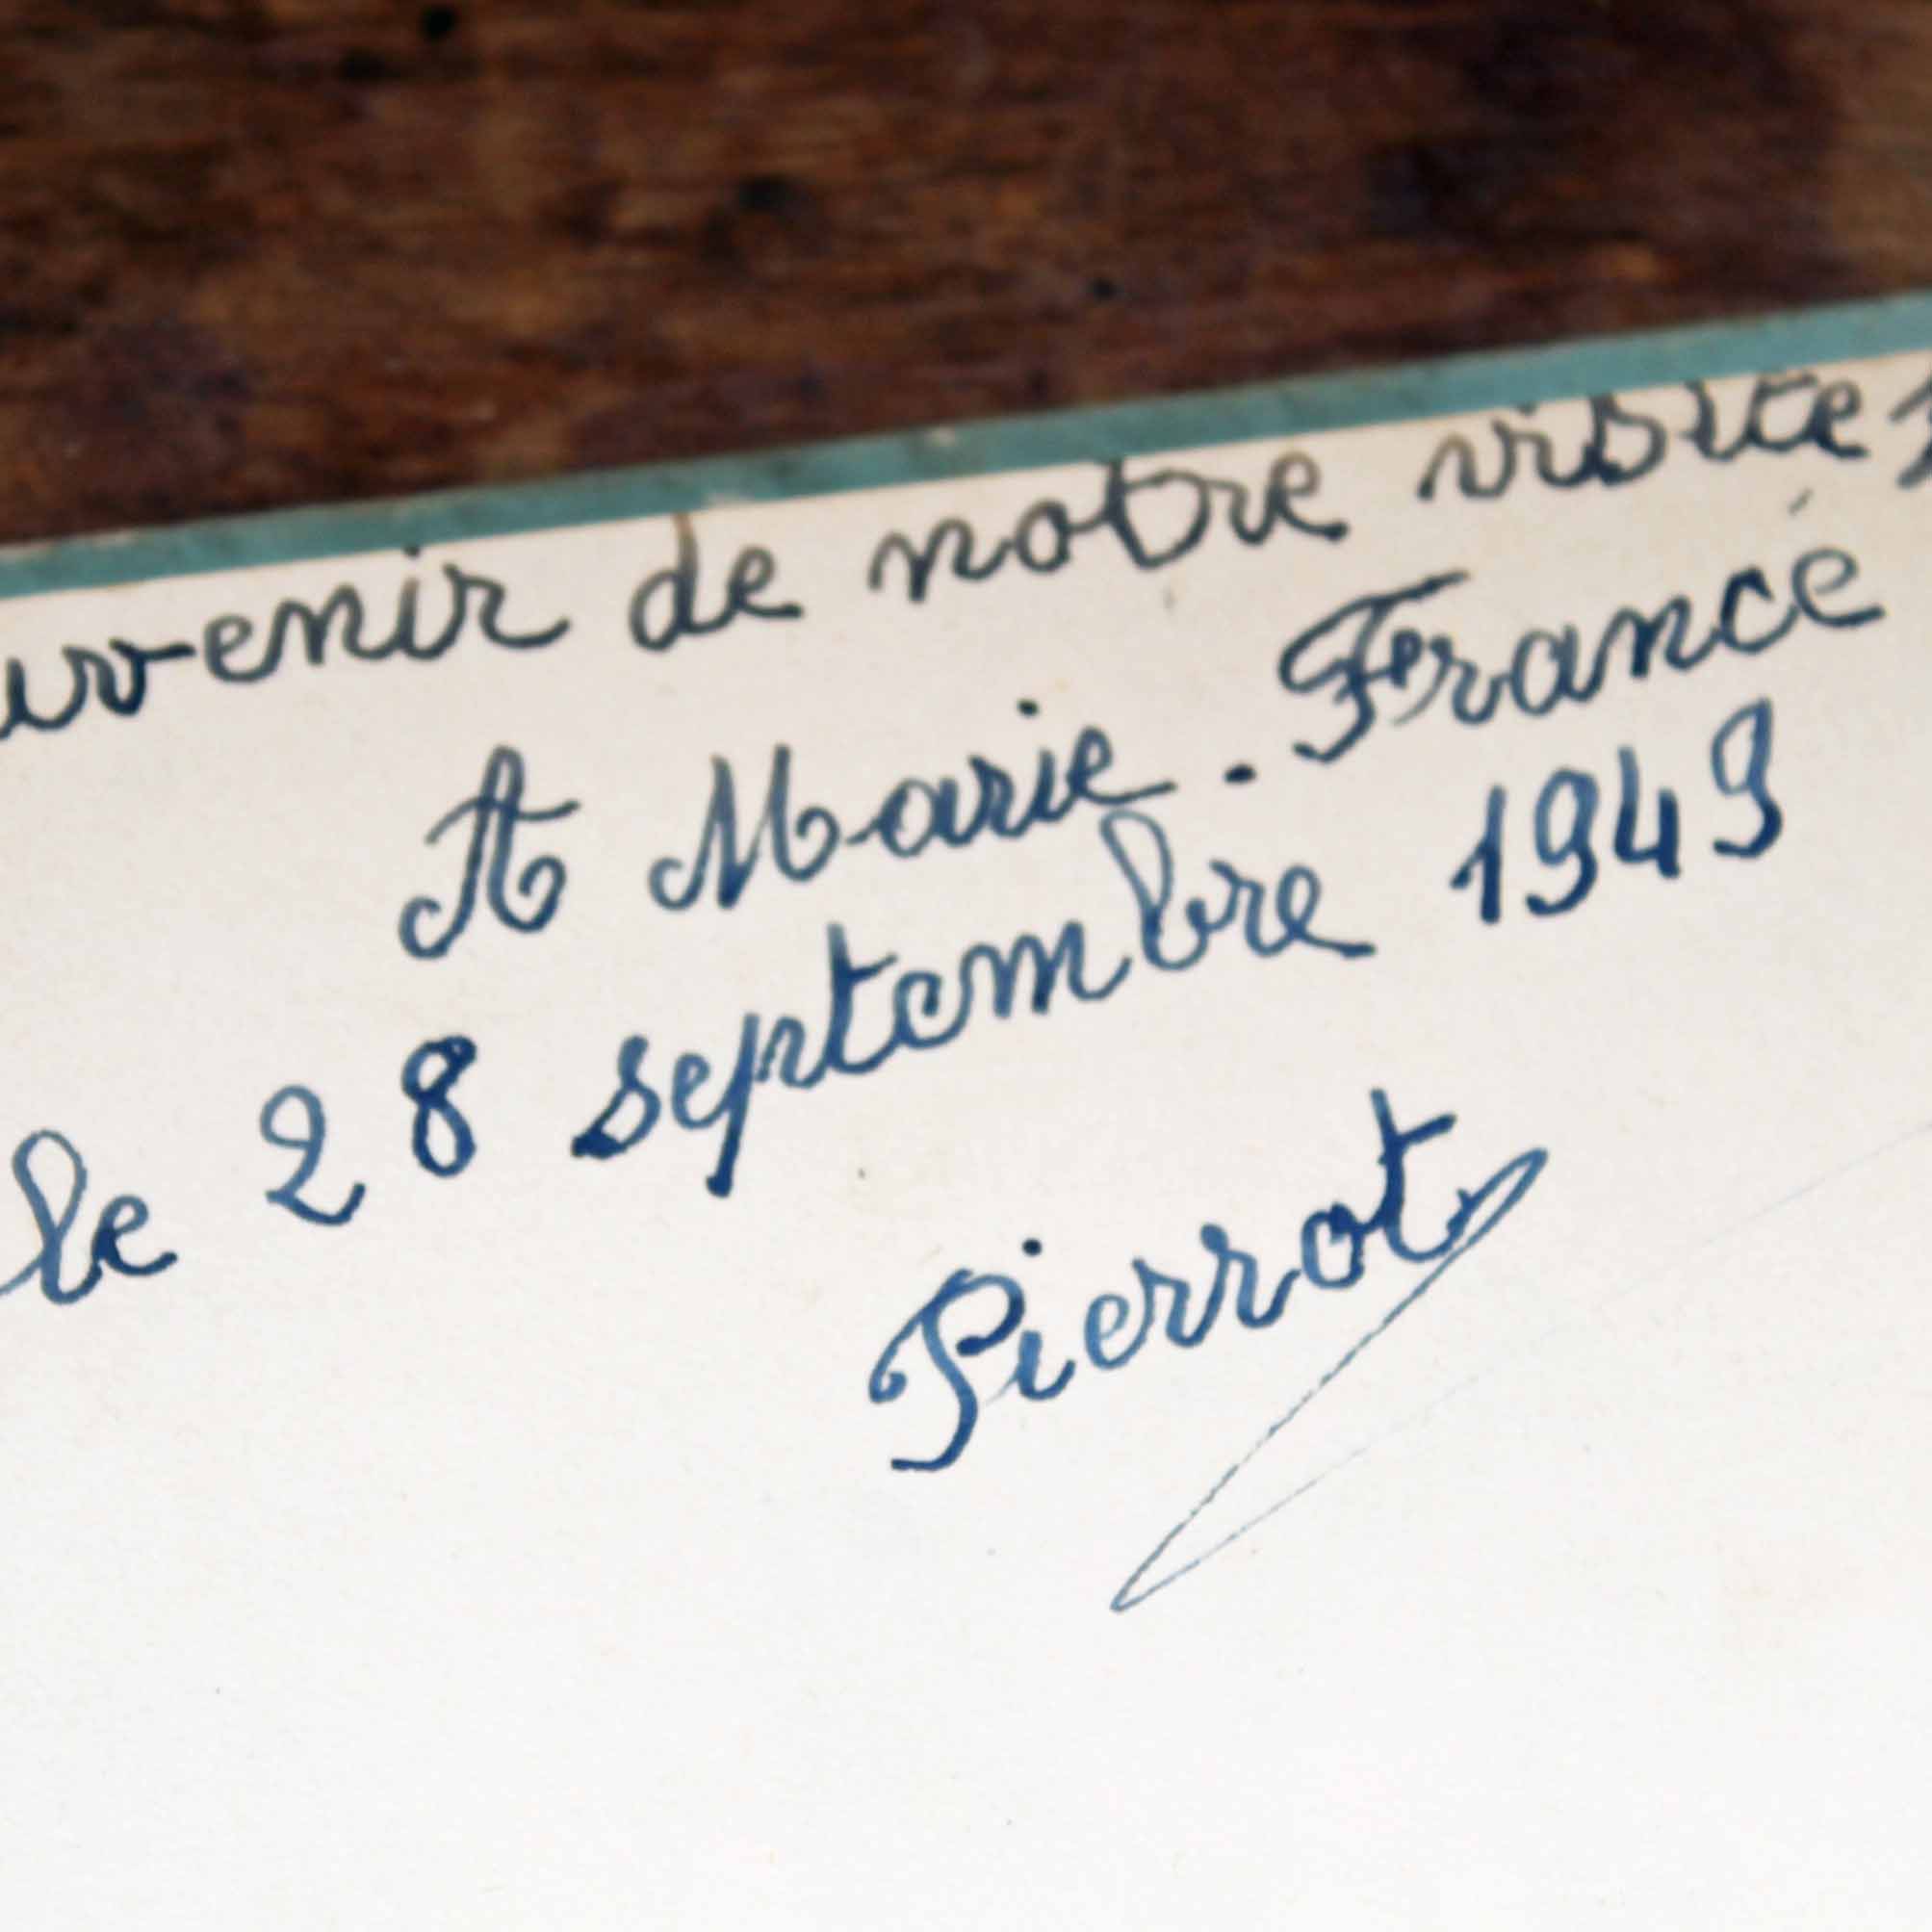 uvenir de notre visite
A Marie-France
le 28 septembre 1949
Pierrot